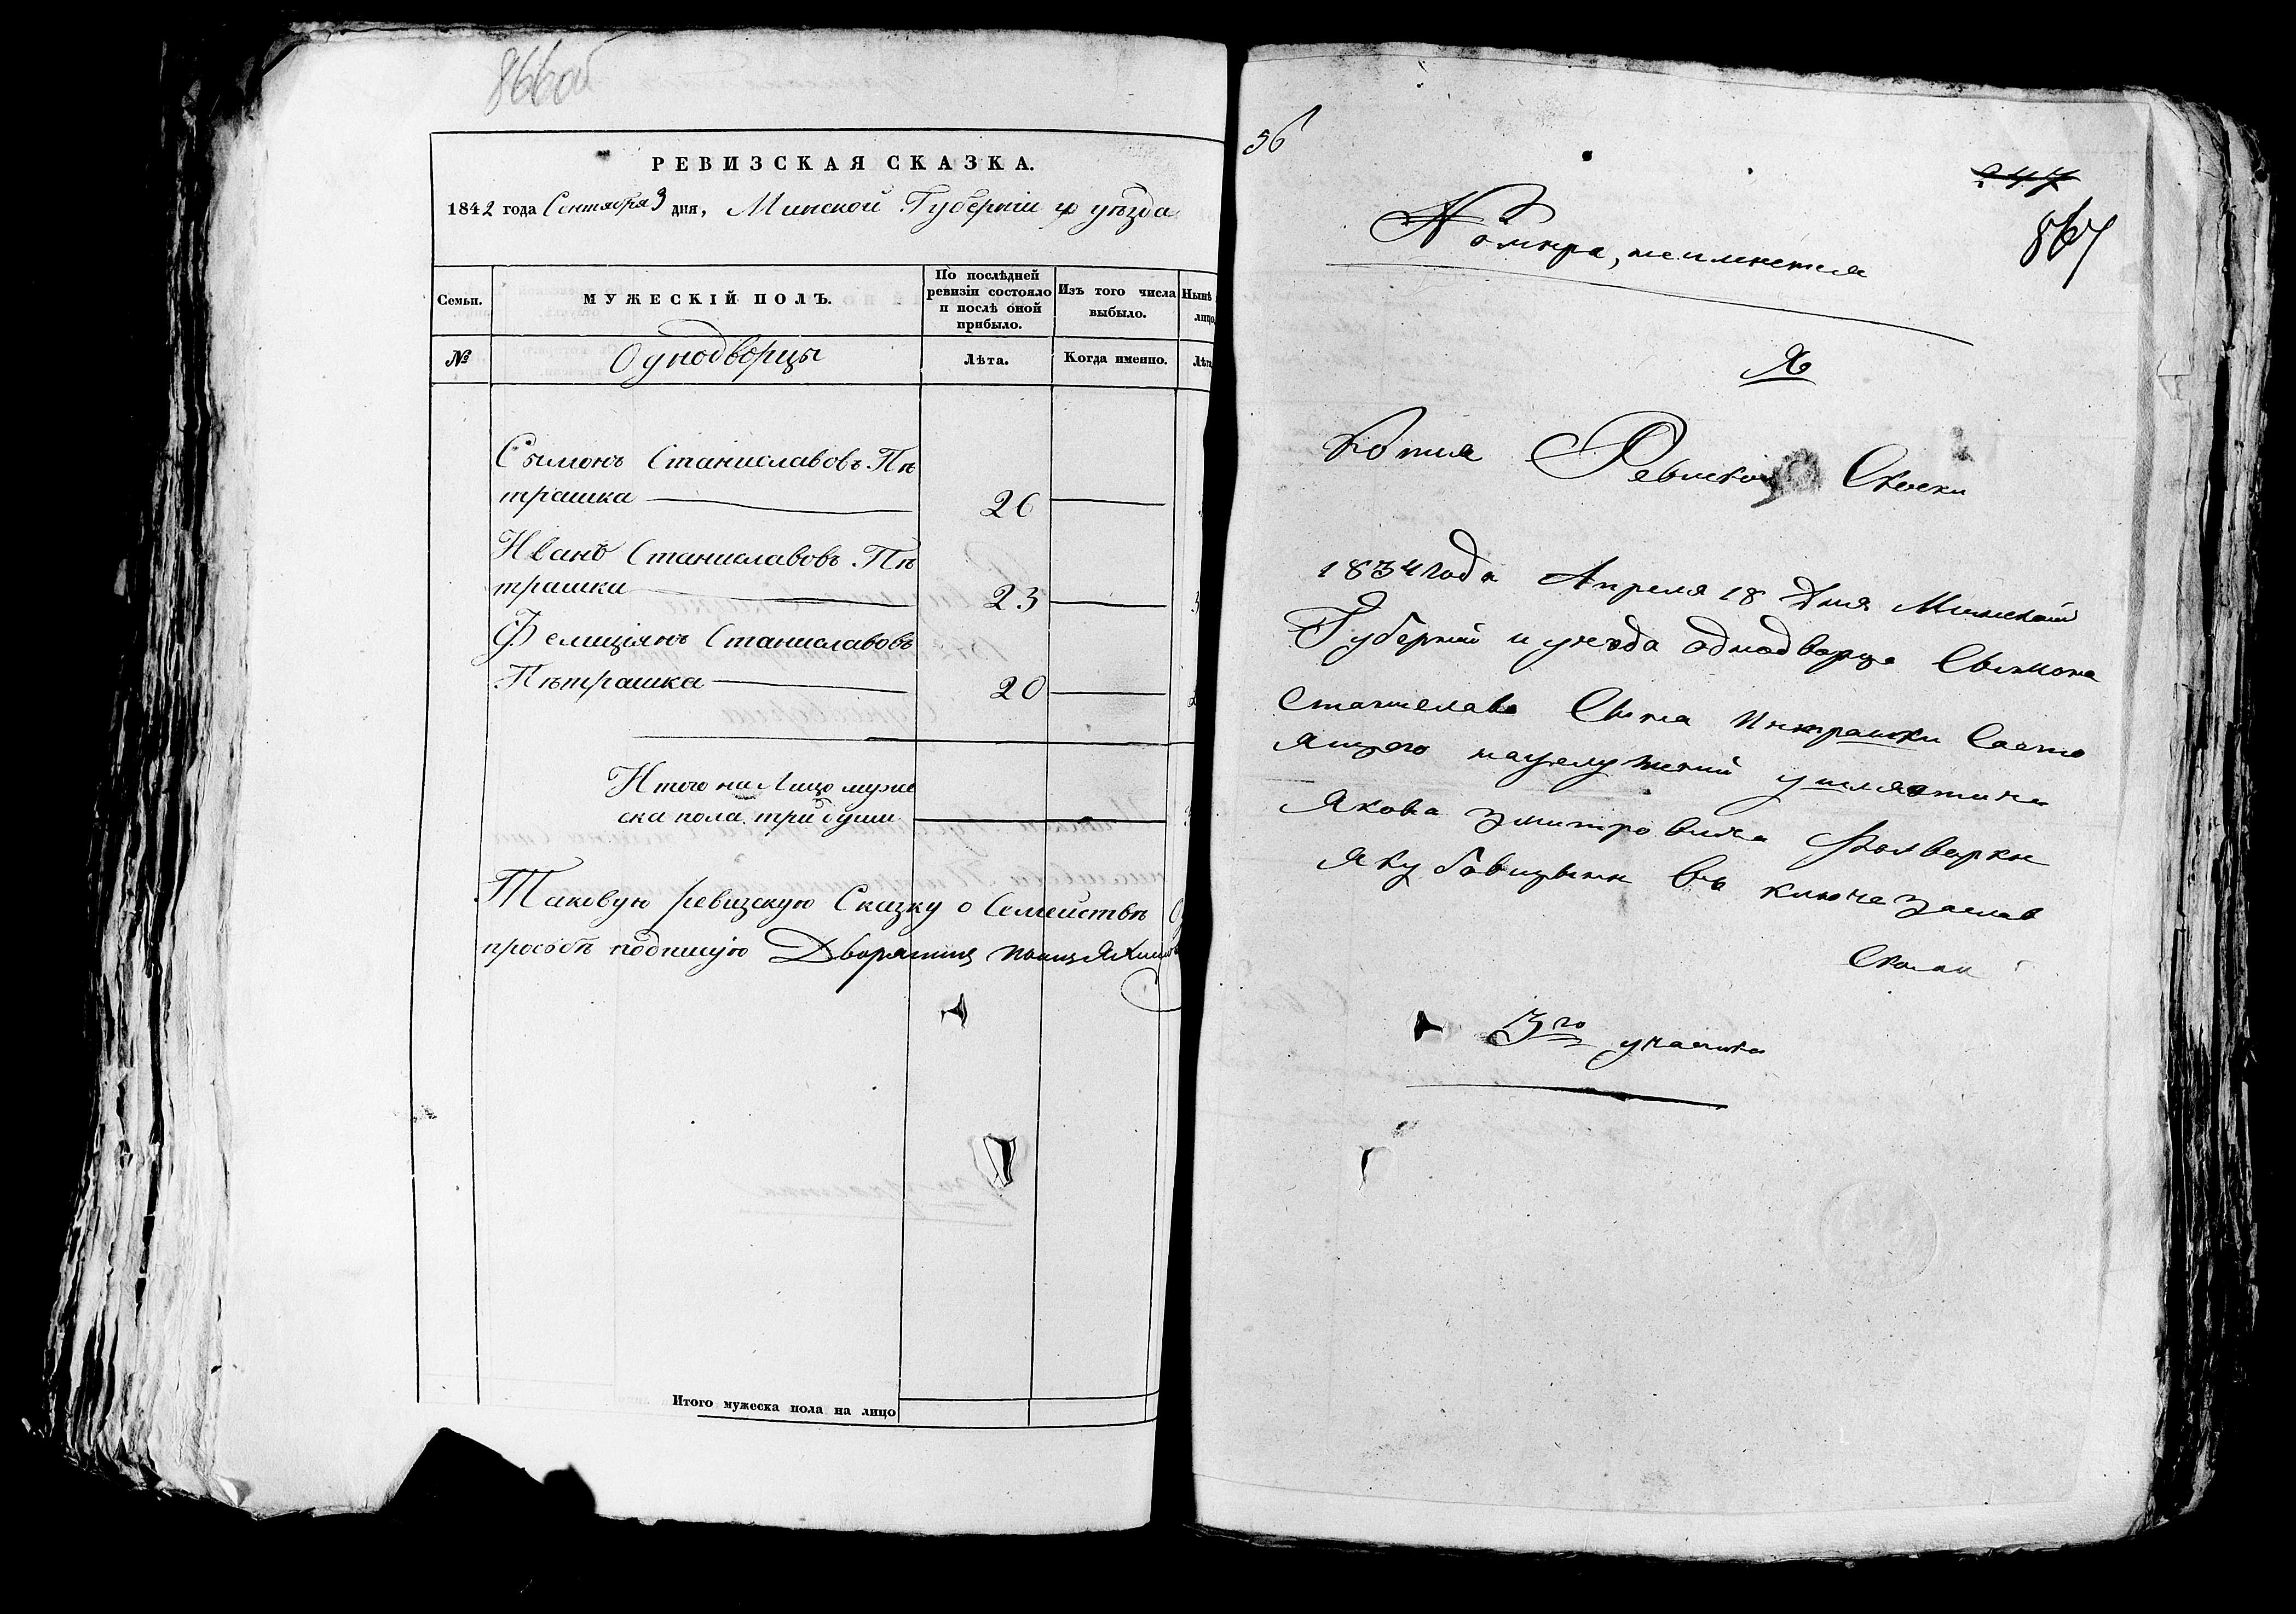 866об
РЕВИЗСКАЯ СКАЗКА.
1842 года Сентября 3 дня, Минской Губернiи и уѣзда
Семьи.
МУЖЕСКІЙ ПОЛЪ.
По послѣдней ревизіи состояло и послѣ оной прибыло.
Изъ того числа выбыло.
Нынѣ
лицо
№
Однодворцы
Лѣта.
Когда именно.
Лѣт
Сымонъ Станиславовъ Пѣ
трашка 26
Иванъ Станиславовъ Пѣ
трашка 23
Фелиціянъ Станиславовъ
Пѣтрашка 20
Итого на Лицо муже
ска пола три души
Таковую ревизскую Сказку о Семействѣ
прособѣ подпишую Дворянинъ
Итого мужеска пола на лицо
56
247
867
Номира, неимеетея
Я
Копия Ревиской Скоски
1834 года Апреля 18 Дня Минской
Губернии и уезда однодворца Сымона
Станислава Сына Петрашки Састо
ящего науслужении ушляхтича
Якова Змитровича Фольварки
Якубовщызни Въ ключе Заслав
Скоми
3го участка